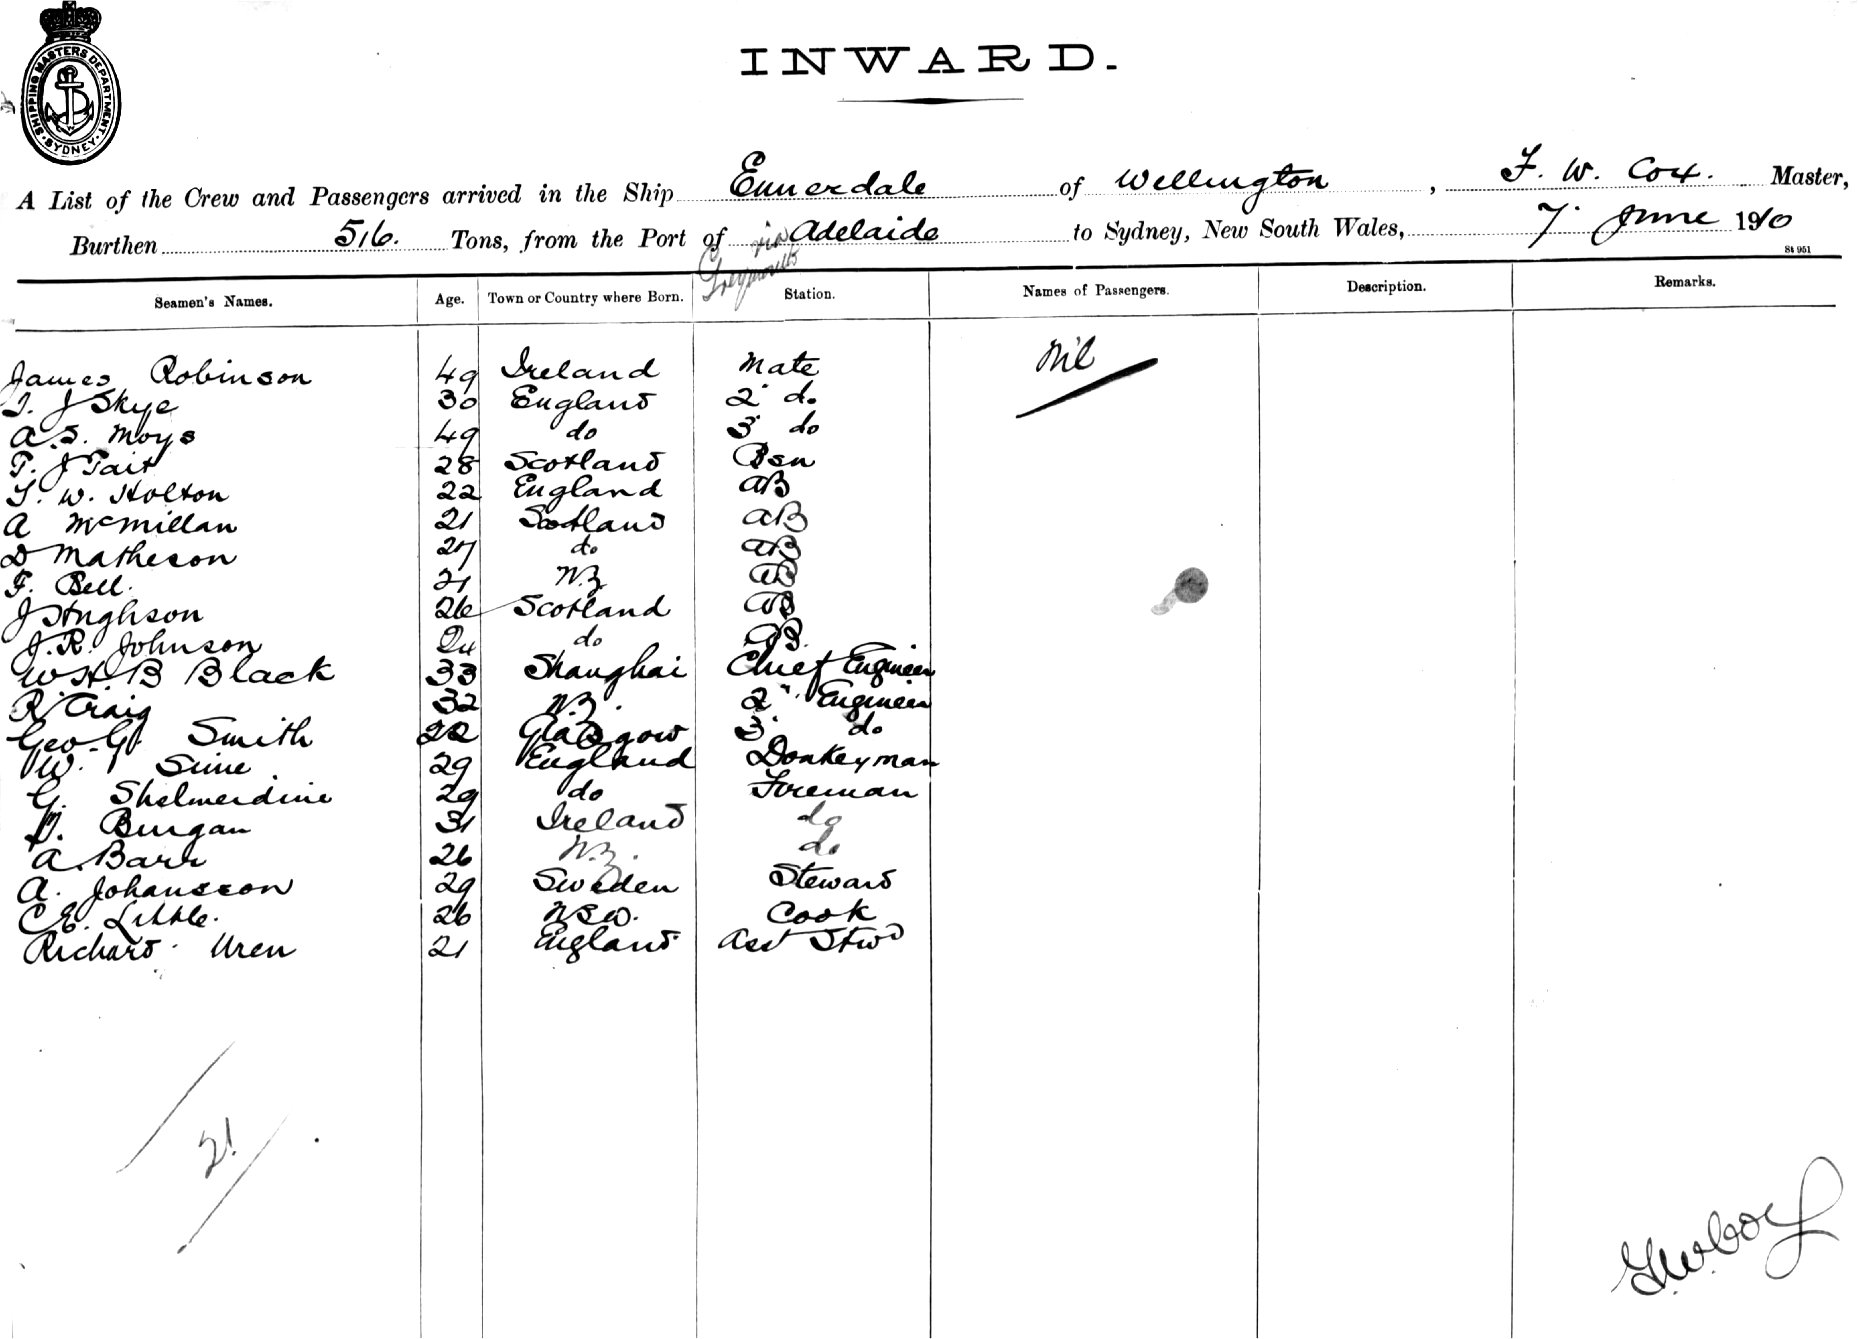 SHIPPING MASTERS DEPARTMENT
SYDNEY
INWARD.
A List of the Crew and Passengers arrived in the Ship Ennerdale of Wellington, F. W. Cox. Master,
Burthen 516. Tons, from the Port of via Adelaide to Sydney, New South Wales, 7. June 1910
Greymouth
St 951
Seamen's Names. Age. Town or Country where Born. Station. Names of Passengers. Description. Remarks.
Nil
James Robinson 49 Ireland Mate
T. J Skye 30 England 2" do.
A. S. Moys 49 do 3 do
T. J Tait 28 Scotland Bsn
T. W. Holton 22 England AB
A McMillan 21 Scotland AB
D Matheson 27 do AB
F. Bell. 21 N.Z. AB
J Hughson 26 Scotland AB
J. R. Johnson 24 do AB.
W H B Black 33 Shanghai Chief Engineer
R Craig 32 N.Z. 2" Engineer
Geo. G. Smith 22 Glasgow 3 do
W. Sime 29 England Donkeyman
G. Shelmerdine 29 do Fireman
D. Burgan 31 Ireland do
A. Barr 26 N.Z. do
A. Johansson 29 Sweden Steward
C E. Little. 26 NSW. Cook
Richard Uren 21 England Asst Stwd
21
F.W. Cox